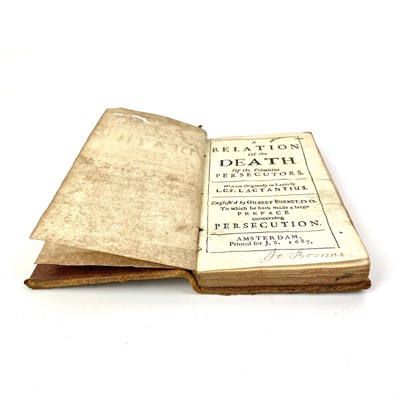 A
RELATION
Of the
DEATH
Of the Primitive
PERSECUTORS.
Written Originally in Latin by
L.C.F. LACTANTIUS.
Englished by GILBERT BURNET, D.D.
To which he hath made a large
PREFACE
concerning
PERSECUTION.
AMSTERDAM,
Printed for J. S. 1687.
Browne